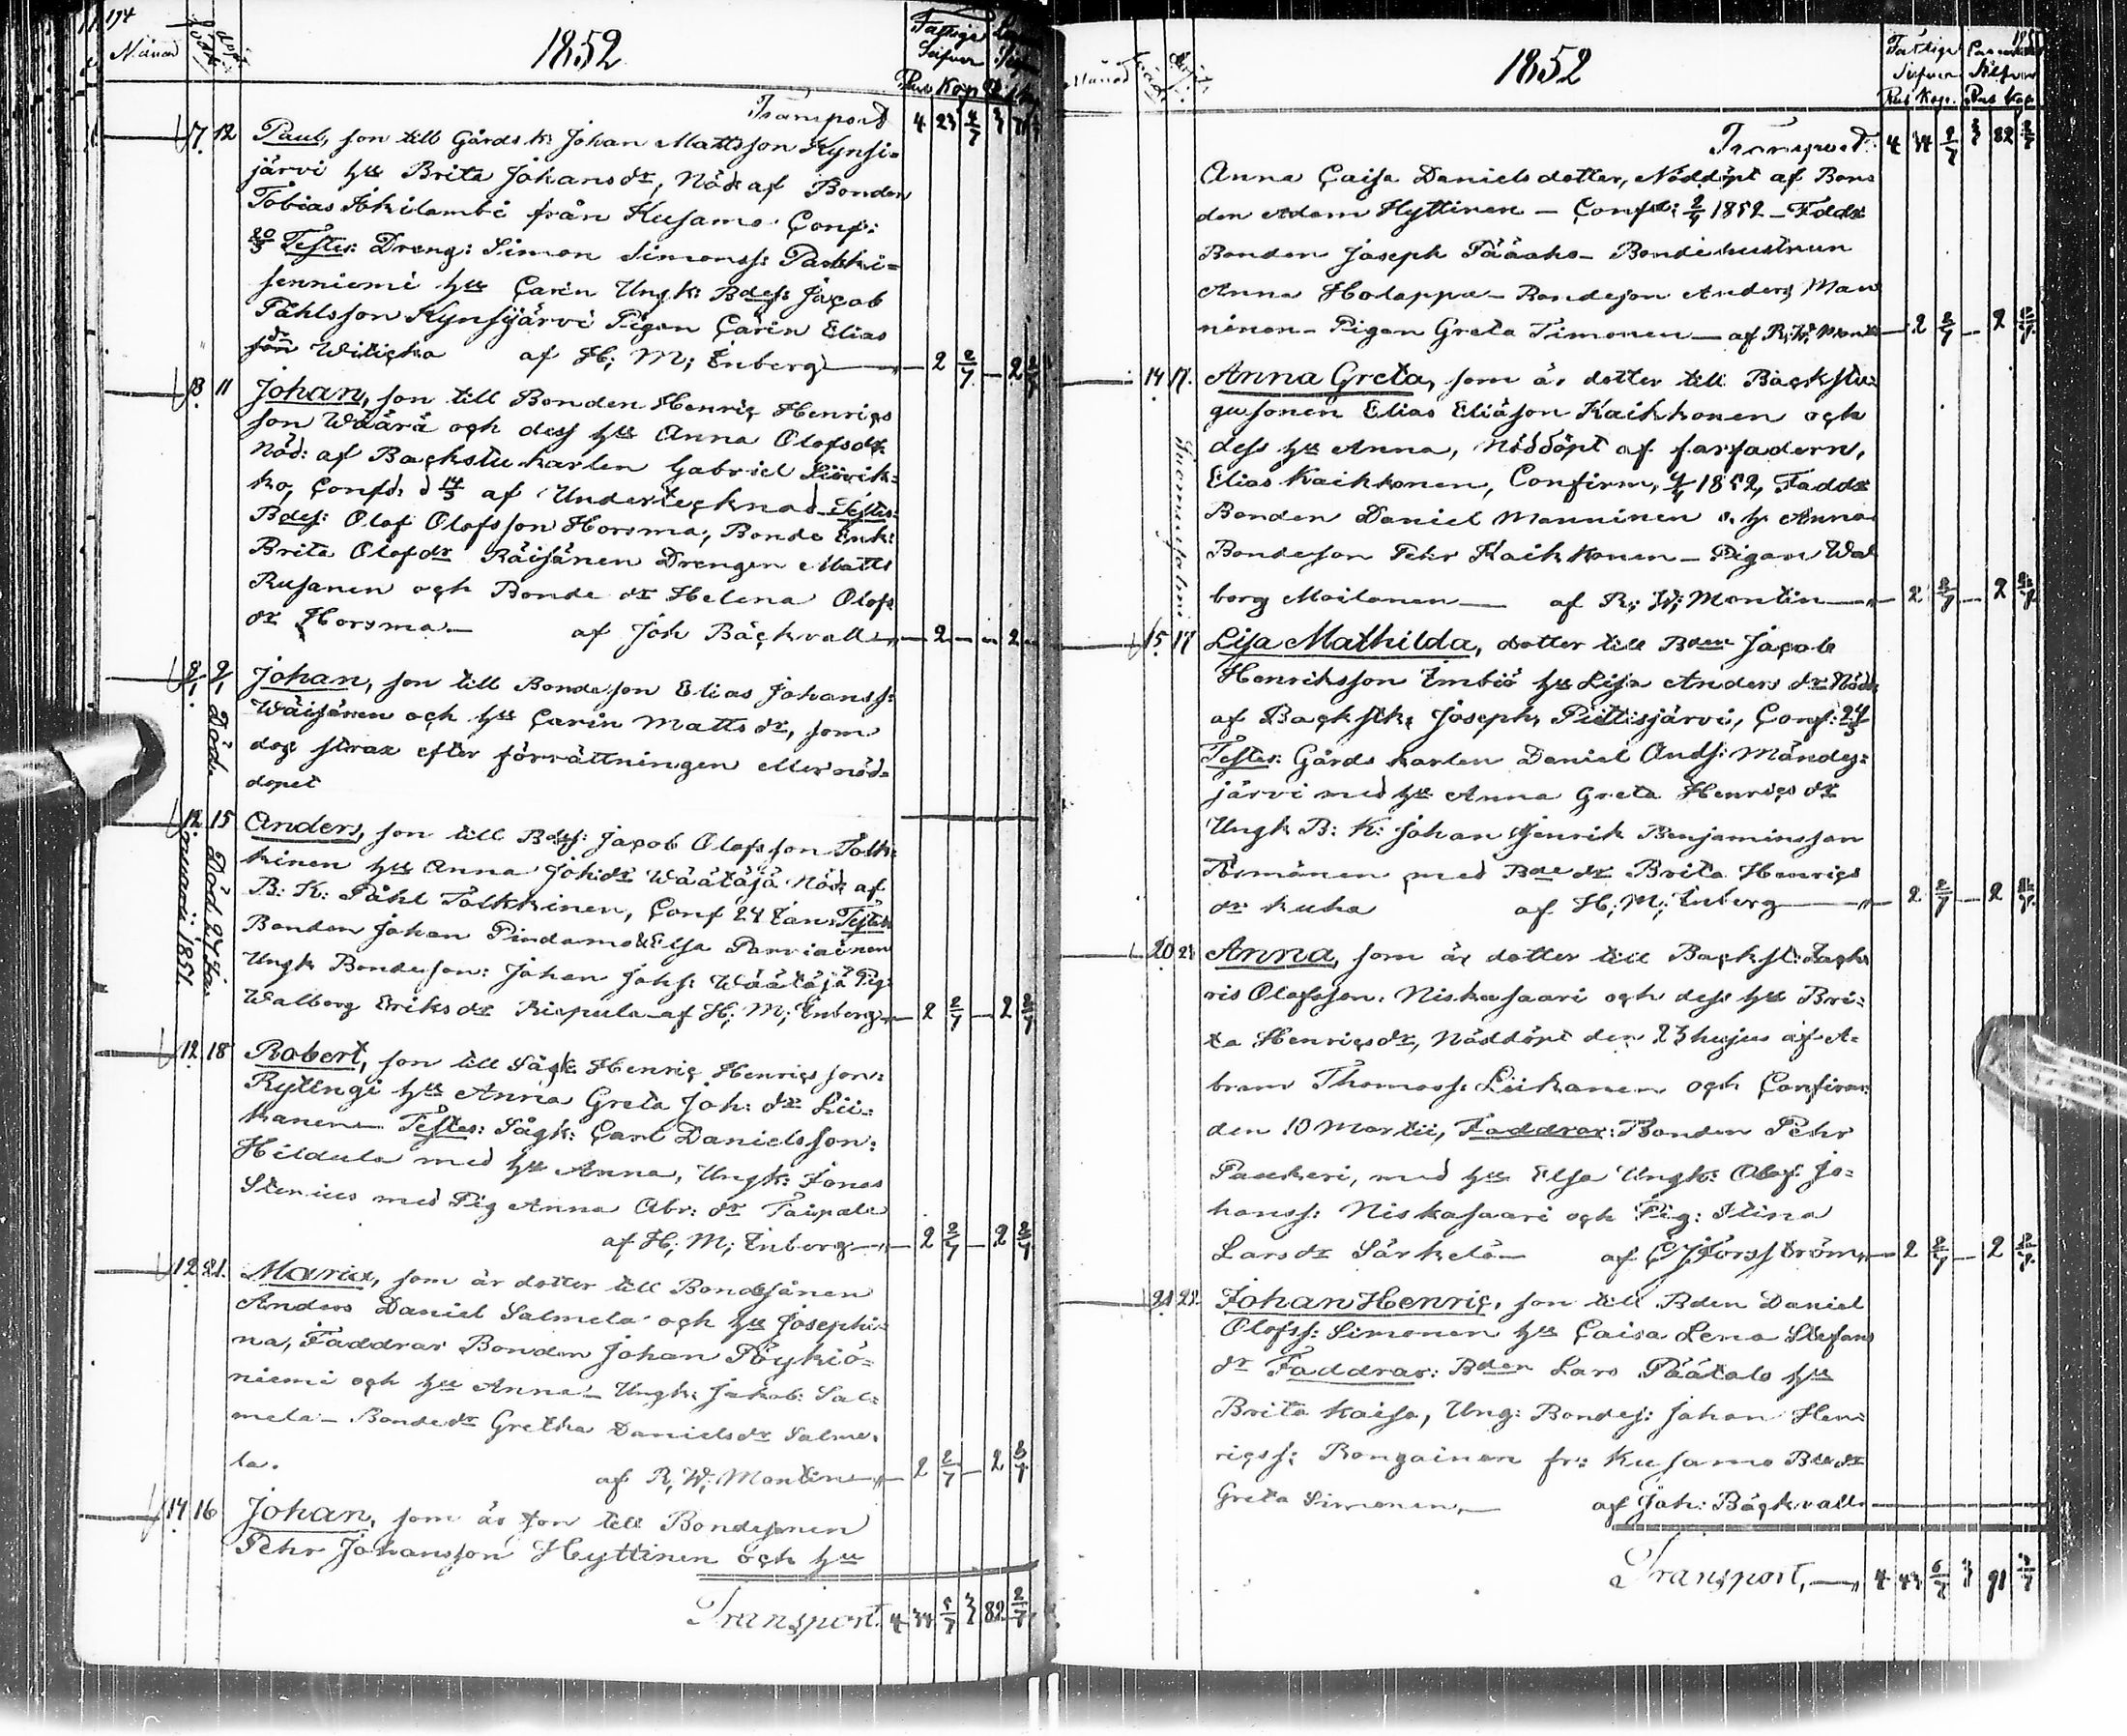 194
1852
Månad
född
döpt
Fattige
Silfver
Rub Kop
Transport 4
7 12 Paul, son till Gårds k: Johan Mattsson Kynsi=
järvi hu Brita Johansdr, Nöd: af Bonden
Tobias Jokilambi från Kusamo Conf:
20/3 Testes: Dreng: Simon Simonss: Parkki=
senniemi hu Carin Ungk: Bdes: Jacob
Påhlsson Kynsijärvi Pigan Carin Elias
dr
son Witicka af H; M; Enberg 2 2/7 2 2/7
8 11 Johan, son till Bonden Henric Henrics
son Wäärä och dess hu Anna Olofsdr
Nöd: af Backstu karlen Gabriel
ko, Confd. d af Undertecknad Testes:
Bdes: Olof Olofsson Horsma, Bonde Enk:
Brita Olofdr Räisänen Drengen Matts
Rusanen och Bonde dr Helena Olofs
dr Horsma af Joh Bäckvall 2 2
9/1 9/1 Johan, son till Bondeson Elias Johanss:
Wäisänen och hu Carin Mattsdr, som
dog strax efter förrättningen eller nöd=
dopet
Döde
Januari 1851.
12 15 Anders, son till Bdes: Jacob Olofsson Tolk=
kinen hu Anna Johdr Wäätäjä Nöd: af
B: K: Påhl Tolkkinen, Conf 24 Jan: Testes
Bonden Johan Pindamo & Elsa Parviainen
Ungk Bondeson: Johan Johs: Wäätäjä Pig:
Walborg Eriksdr Riepula af H; M; Enberg 2 2/7 2 2/7
Död 24 Jan
12 18 Robert, son till Sågk: Henric Henrics son:
Rytingi hu Anna Greta Joh: dr Lii=
kanen Testes: Sågk: Carl Danielsson:
Hildula med hu Anna, Ungk: Jonas
Stenius med Pig Anna Abr: dr Taipale
af H; M; Enberg 2 2/7 2 2/7
12 21. Maria, som är dotter till Bondesonen
Anders Daniel Salmela och hu Josephi=
na, Faddrar Bonden Johan Pöykiö=
niemi och hu Anna Ungk: Jakob: Sal=
mela Bondedr Gretha Danielsdr Salme=
la. af R; W; Montin 2 2/7 2 2/7
14 16 Johan, som är son till Bondesonen
Pehr Johansson Heyttinen och hu
Transport 4 34 3 82 2/7
1852
Månad
Fattige
Silfver
Rub Kop.
Silfver
Rub Kop
Transport 4 34 2/7 3 82 2/7
Anna Caisa Danielsdotter, Nöddöpt af Bon=
den Adam Hyttinen — Confd: 1852 — Faddr
Bonden Joseph Pääaho — Bondehustrun
Anna Holappa — Bondeson Anders Man
ninen — Pigan Greta Timonen — af R; W; Montin 2 2/7 2 2/7
14 17. Anna Greta, som är dotter till Backstu=
gusonen Elias Eliäson Kaikkonen och
dess hu Anna, Nöddöpt af farfadern,
Elias Kaikkonen, Confirm, 1852, Faddr
Bonden Daniel Manninen o. h. Anna
Bondeson Pehr Kaikkonen — Pigan Wal
borg Moilanen — af R; W; Montin 2 2/7 2 2/7
Suomusalmi
15 17 Lisa Mathilda, dotter till Bden Jacob
Henriksson Embiö hu Lisa Anders dr: Nöd:
af Backstk: Joseph Piittisjärvi, Conf: 24/3
Testes: Gårdskarlen Daniel Ands: Mändes=
järvi med hu Anna Greta Henrics dr
Ungk B: K: Johan Henrik Benjaminsson
med Bde dr Brita Henrics
dr Kuha af H; M; Enberg 2 2/7 2 2/7
20 23 Anna, som är dotter till Backst: Zacha
ris Olofsson: Niskasaari och dess hu Bri=
ta Henricsdr, Nöddöpt den 23 hujus af A=
bram Thomass: Liikanen och Confirm:
den 10 Martii, Faddrar: Bonden Pehr
Paukeri, med hu Elsa Ungk: Olof Jo=
hanss: Niskasaari och Pig: Stina
Lars dr Särkelä af C J Forsström 2 2/7 2 2/7
21 23. Johan Henric, son till Bden Daniel
Olofss: Simonen hu Caisa Lena Stefans
dr Faddrar: Bden Lars Päätalo hu
Brita Kaisa, Ung: Bondes: Johan Hen=
ricss: Rongainen fr: Kusamo Bdedr
Greta Simonen, af Joh: Bäckvall
Transport, 4 43 6/7 3 91